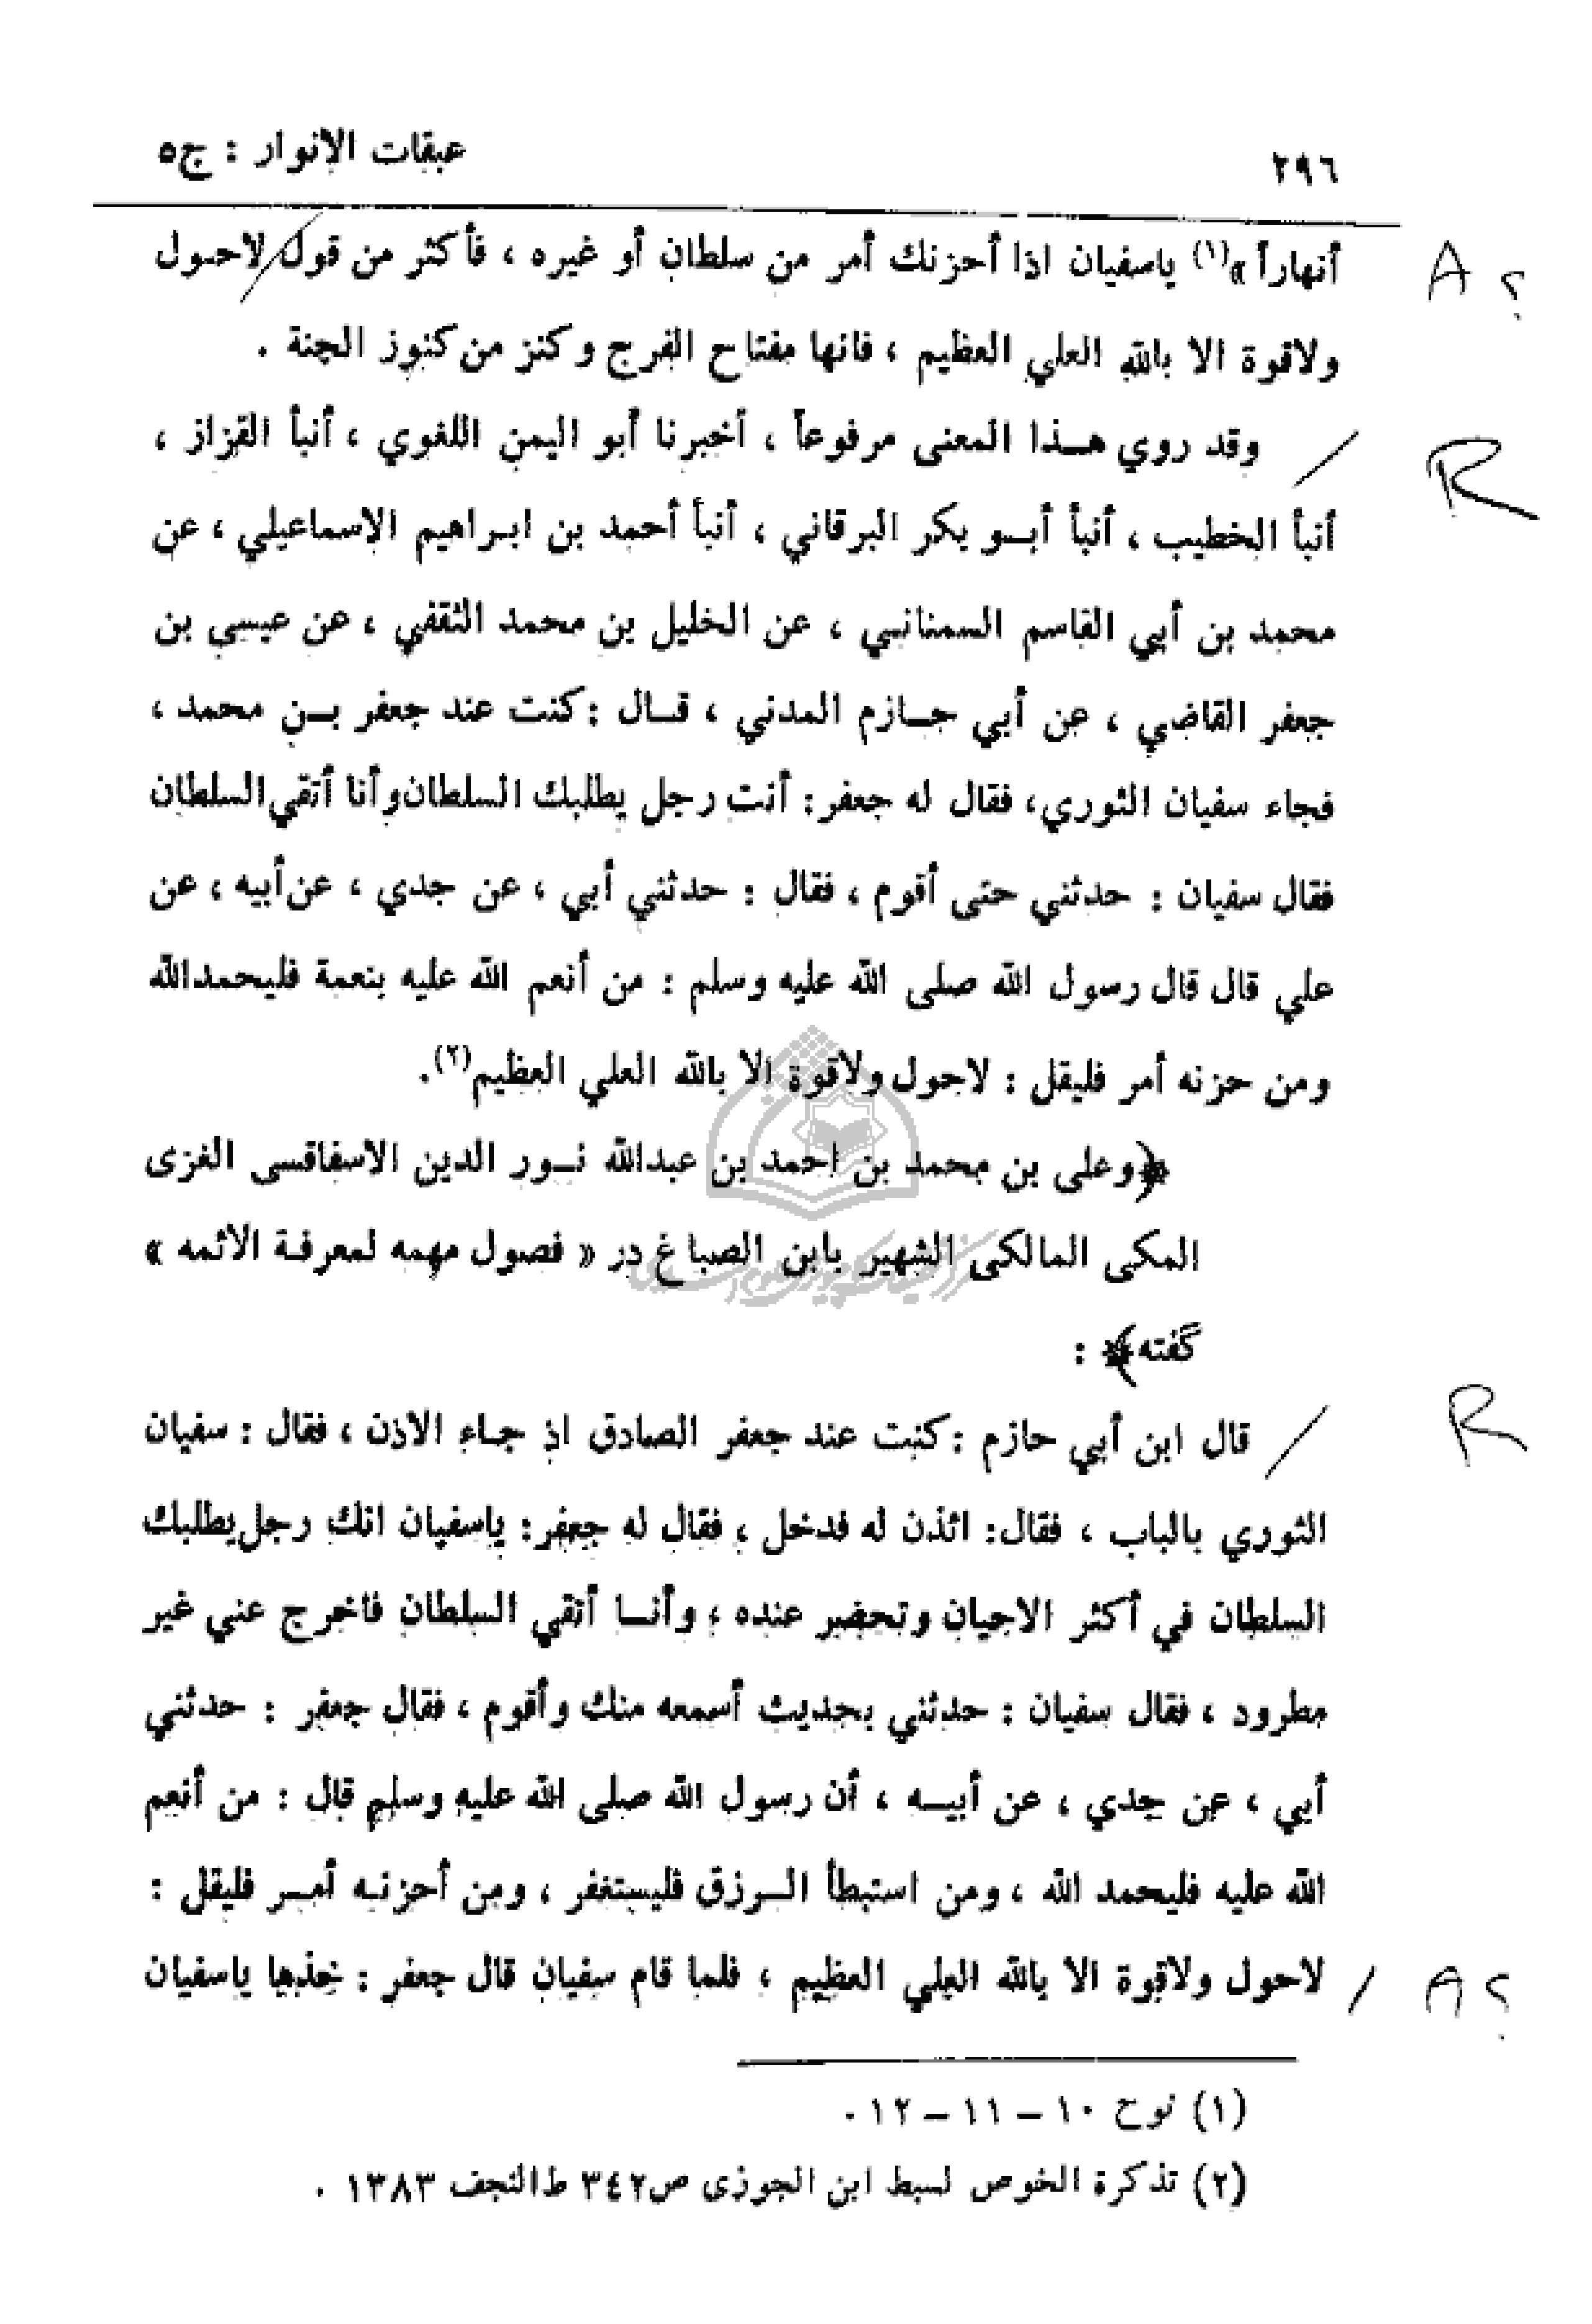 ٢٩٦ عبقات الانوار : ج٥
أنهاراً »(١) ياسفيان اذا أحزنك أمر من سلطان أو غيره ، فأكثر من قول لاحول
A ؟
ولاقوة الا بالله العلي العظيم ، فانها مفتاح الفرج وكنز من كنوز الجنة .
وقد روي هـذا المعنى مرفوعاً ، أخبرنا أبو اليمن اللغوي ، أنبأ القزاز ،
R
أنبأ الخطيب ، أنبأ أبـو بكر البرقاني ، أنبأ أحمد بن ابـراهيم الاسماعيلي ، عن
محمد بن أبي القاسم السمناني ، عن الخليل بن محمد الثقفي ، عن عيسى بن
جعفر القاضي ، عن أبي حـازم المدني ، قـال : كنت عند جعفر بـن محمد ،
فجاء سفيان الثوري، فقال له جعفر: أنت رجل يطلبك السلطان وأنا أتقي السلطان
فقال سفيان : حدثني حتى أقوم ، فقال : حدثني أبي ، عن جدي ، عن أبيه ، عن
علي قال قال رسول الله صلى الله عليه وسلم : من أنعم الله عليه بنعمة فليحمدالله
ومن حزنه أمر فليقل : لاحول ولاقوة الا بالله العلي العظيم(٢).
﴿وعلى بن محمد بن احمد بن عبدالله نـور الدين الاسفاقسى الغزى
المكى المالكى الشهير بابن الصباغ در « فصول مهمه لمعرفة الائمه »
گفته﴾ :
قال ابن أبي حازم : كنت عند جعفر الصادق اذ جـاء الاذن ، فقال : سفيان
R
الثوري بالباب ، فقال: ائذن له فدخل ، فقال له جعفر: ياسفيان انك رجل يطلبك
السلطان في أكثر الاحيان وتحضر عنده ؛ وأنـا أتقي السلطان فاخرج عني غير
مطرود ، فقال سفيان : حدثني بحديث أسمعه منك وأقوم ، فقال جعفر : حدثني
أبي ، عن جدي ، عن أبيـه ، أن رسول الله صلى الله عليه وسلم قال : من أنعم
الله عليه فليحمد الله ، ومن استبطأ الـرزق فليستغفر ، ومن أحزنـه أمـر فليقل :
لاحول ولاقوة الا بالله العلي العظيم ، فلما قام سفيان قال جعفر : خذها ياسفيان
A ؟
(١) نوح ١٠ – ١١ – ١٢ .
(٢) تذكرة الخوص لسبط ابن الجوزى ص٣٤٢ ط النجف ١٣٨٣ .